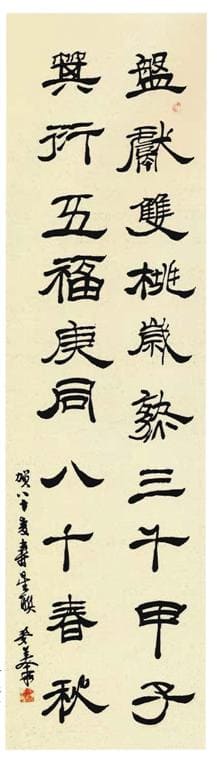 盤獻雙桃歲熟三千甲子
箕衍五福庚同八十春秋
賀八十雙壽星聯